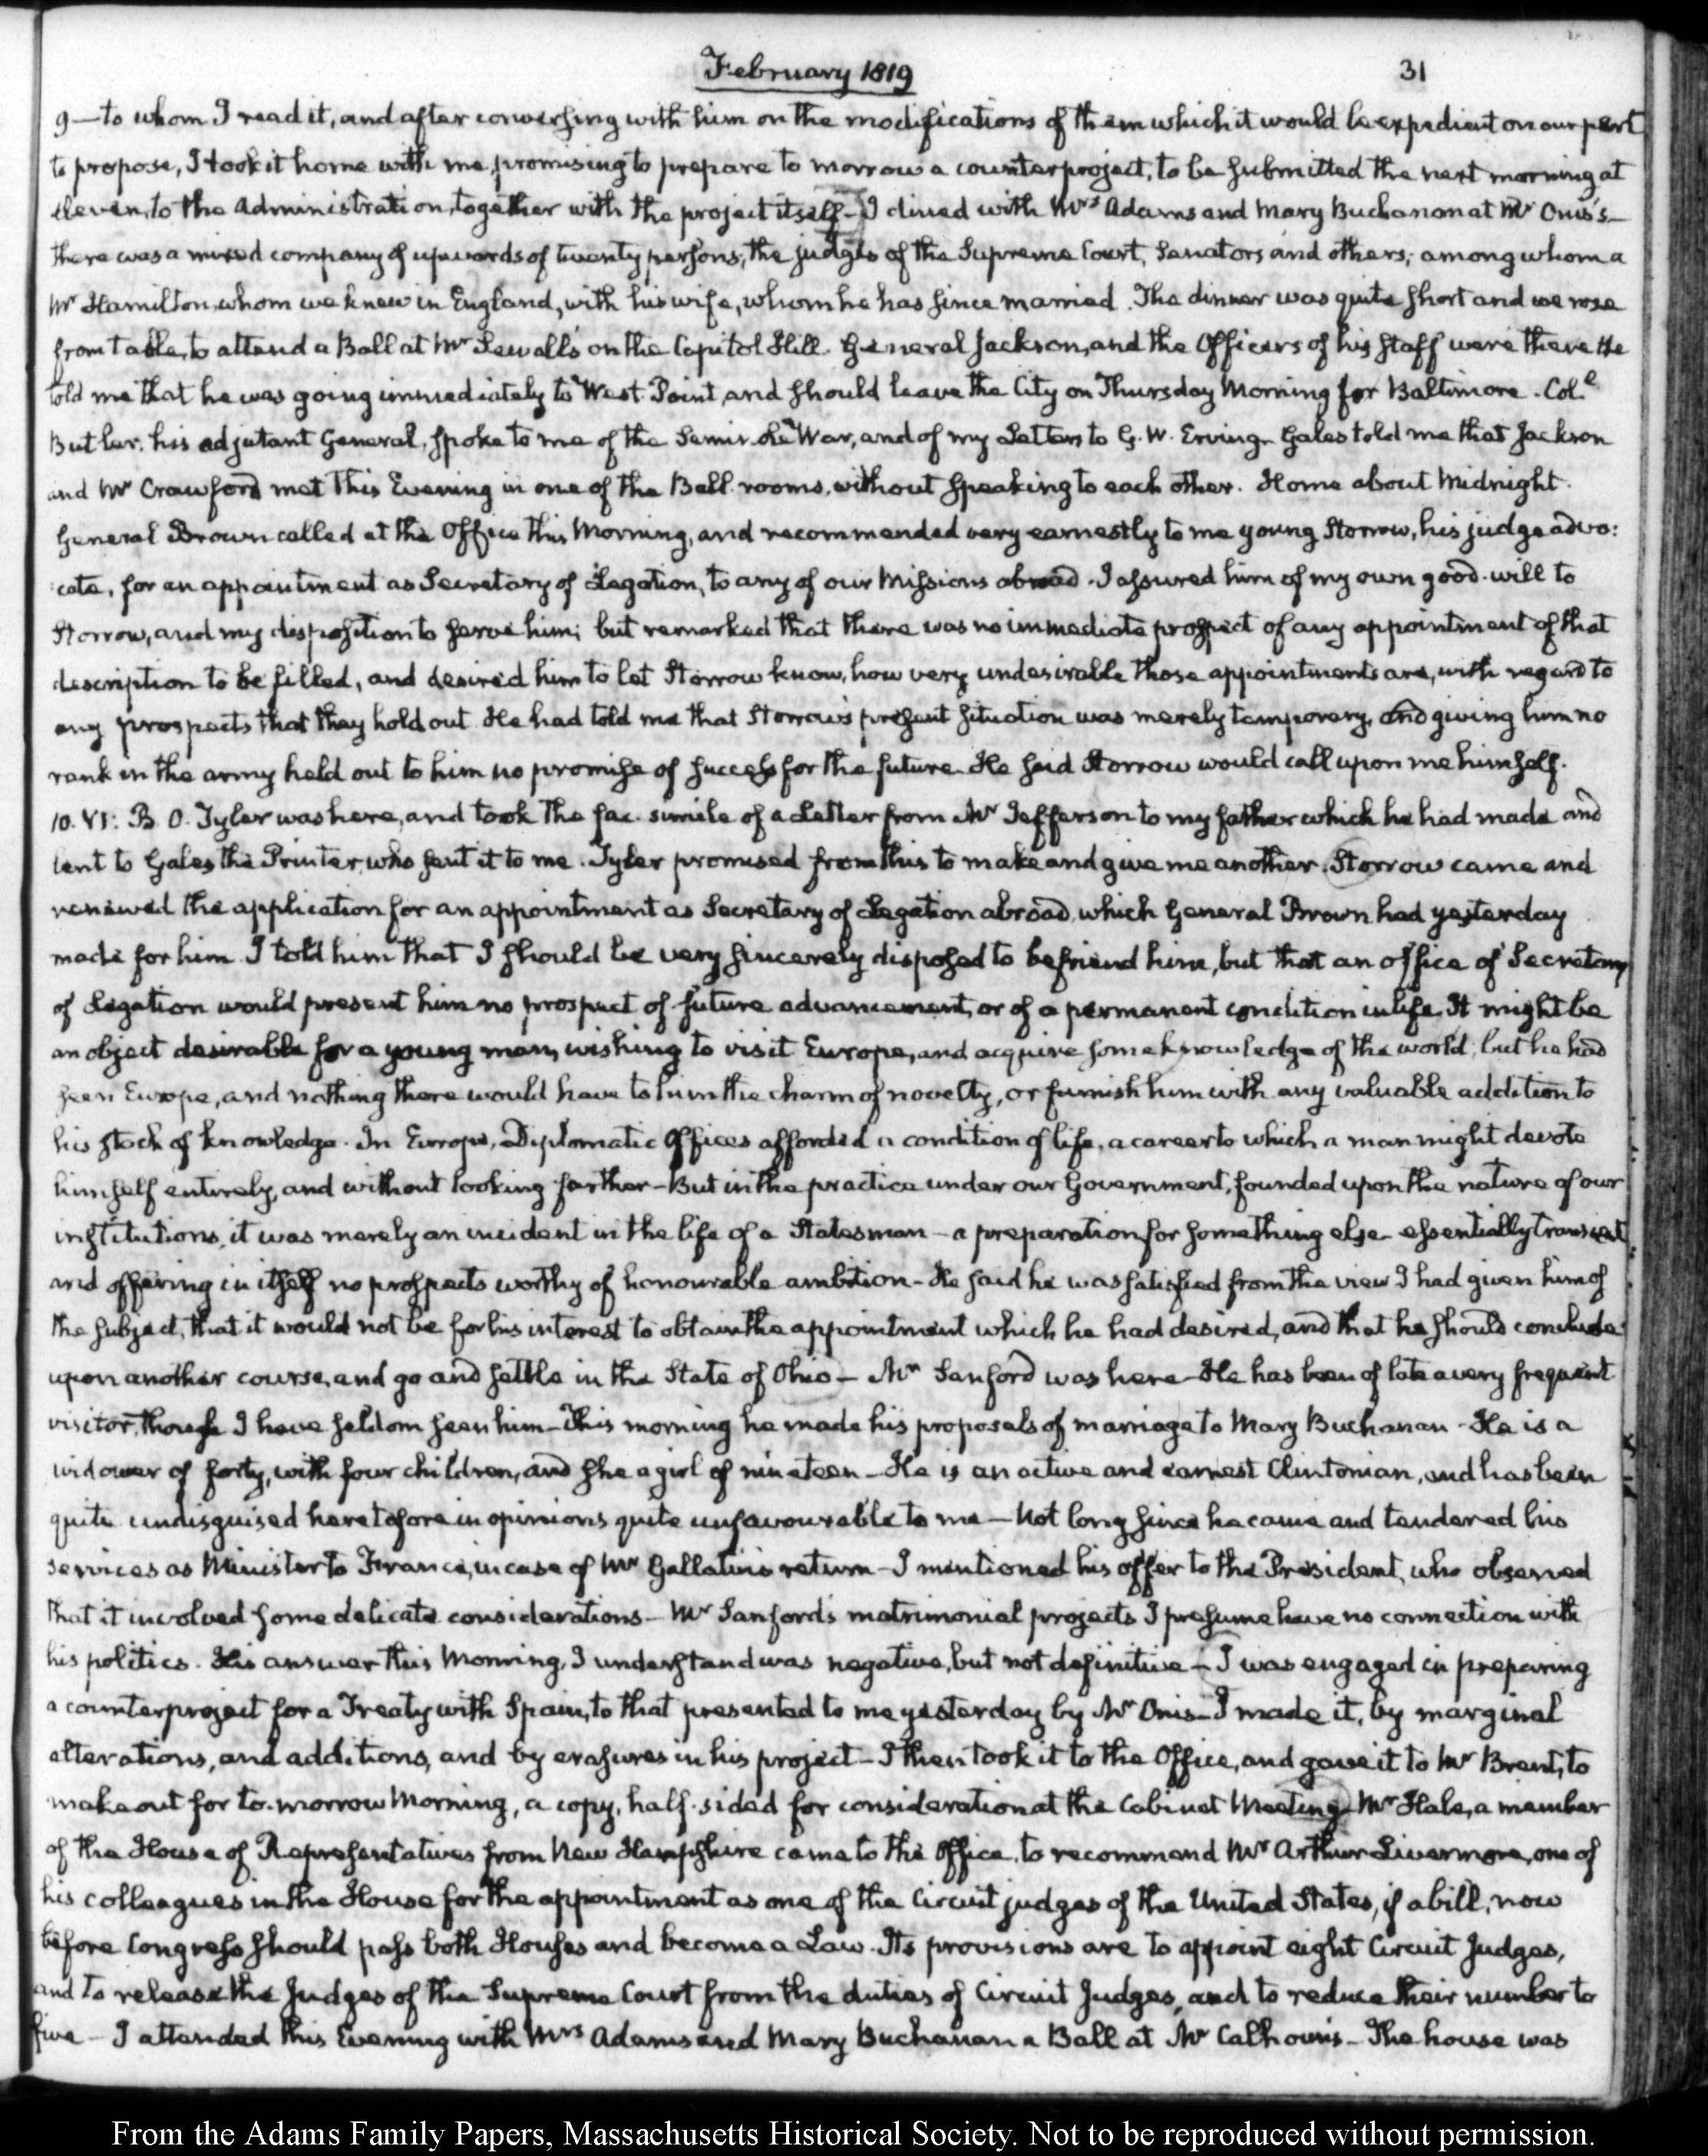 February 1819
31
9—to whom I read it, and after conversing with him on the modifications of them which it would be expedient on our part
to propose, I took it home with me, promising to prepare to morrow a counterproject, to be submitted the next morning at
eleven, to the Administration, together with the project itself—I dined with Mrs Adams and Mary Buchanan at Mr Onis's—
there was a mixed company of upwards of twenty persons; the judges of the Supreme Court, Senators and others; among whom a
Mr Hamilton, whom we knew in England, with his wife, whom he has since married. The dinner was quite short and we rose
from table, to attend a Ball at Mr Sewall's on the Capitol Hill. General Jackson, and the Officers of his staff were there He
told me that he was going immediately to West-Point, and should leave the City on Thursday Morning for Baltimore. Cole
Butler, his adjutant General, spoke to me of the Seminole War, and of my Letter to G. W. Erving. Gales told me that Jackson
and Mr Crawford met this Evening in one of the Ball-rooms, without speaking to each other. Home about Midnight.
General Brown called at the Office this Morning, and recommended very earnestly to me young Storrow, his judge advo:
:cate, for an appointment as Secretary of Legation, to any of our Missions abroad. I assured him of my own good-will to
Storrow, and my disposition to serve him; but remarked that there was no immediate prospect of any appointment of that
description to be filled, and desired him to let Storrow know, how very undesirable those appointments are, with regard to
any prospects that they hold out. He had told me that Storrow's present situation was merely temporary, and giving him no
rank in the army held out to him no promise of success for the future. He said Storrow would call upon me himself.
10. VI: B. O. Tyler was here, and took the fac-simile of a Letter from Mr Jefferson to my father which he had made and
lent to Gales the Printer, who sent it to me. Tyler promised from this to make and give me another. Storrow came and
renewed the application for an appointment as Secretary of Legation abroad, which General Brown had yesterday
made for him. I told him that I should be very sincerely disposed to befriend him, but that an office of Secretary
of Legation would present him no prospect of future advancement, or of a permanent condition in life. It might be
an object desirable for a young man, wishing to visit Europe, and acquire some knowledge of the world; but he had
seen Europe, and nothing there would have to him the charm of novelty, or furnish him with any valuable addition to
his stock of knowledge. In Europe, Diplomatic Offices afforded a condition of life, a career to which a man might devote
himself entirely, and without looking farther—But in the practice under our Government, founded upon the nature of our
institutions, it was merely an incident in the life of a Statesman—a preparation for something else—essentially transient
and offering in itself no prospects worthy of honourable ambition—He said he was satisfied from the view I had given him of
the subject, that it would not be for his interest to obtain the appointment which he had desired, and that he should conclude
upon another course, and go and settle in the State of Ohio—Mr Sanford was here—He has been of late a very frequent
visitor, though I have seldom seen him—This morning he made his proposals of marriage to Mary Buchanan—He is a
widower of forty, with four children, and she a girl of nineteen—He is an active and earnest Clintonian, and has been
quite undisguised heretofore in opinions quite unfavourable to me—Not long since he came and tendered his
services as Minister to France, in case of Mr Gallatin's return—I mentioned his offer to the President, who observed
that it involved some delicate considerations—Mr Sanford's matrimonial projects I presume have no connection with
his politics. His answer this Morning, I understand was negative, but not definitive—I was engaged in preparing
a counterproject for a Treaty with Spain, to that presented to me yesterday by Mr Onis—I made it, by marginal
alterations, and additions, and by erasures in his project—I then took it to the Office, and gave it to Mr Brent, to
make out for to-morrow Morning, a copy, half-sided for consideration at the Cabinet Meeting—Mr Hale, a member
of the House of Representatives from New Hampshire came to the Office, to recommend Mr Arthur Livermore, one of
his colleagues in the House for the appointment as one of the Circuit judges of the United States, if a bill, now
before Congress should pass both Houses and become a Law. Its provisions are to appoint eight Circuit Judges,
and to release the Judges of the Supreme Court from the duties of Circuit Judges, and to reduce their number to
five—I attended this Evening with Mrs Adams and Mary Buchanan a Ball at Mr Calhoun's—The house was
From the Adams Family Papers, Massachusetts Historical Society. Not to be reproduced without permission.